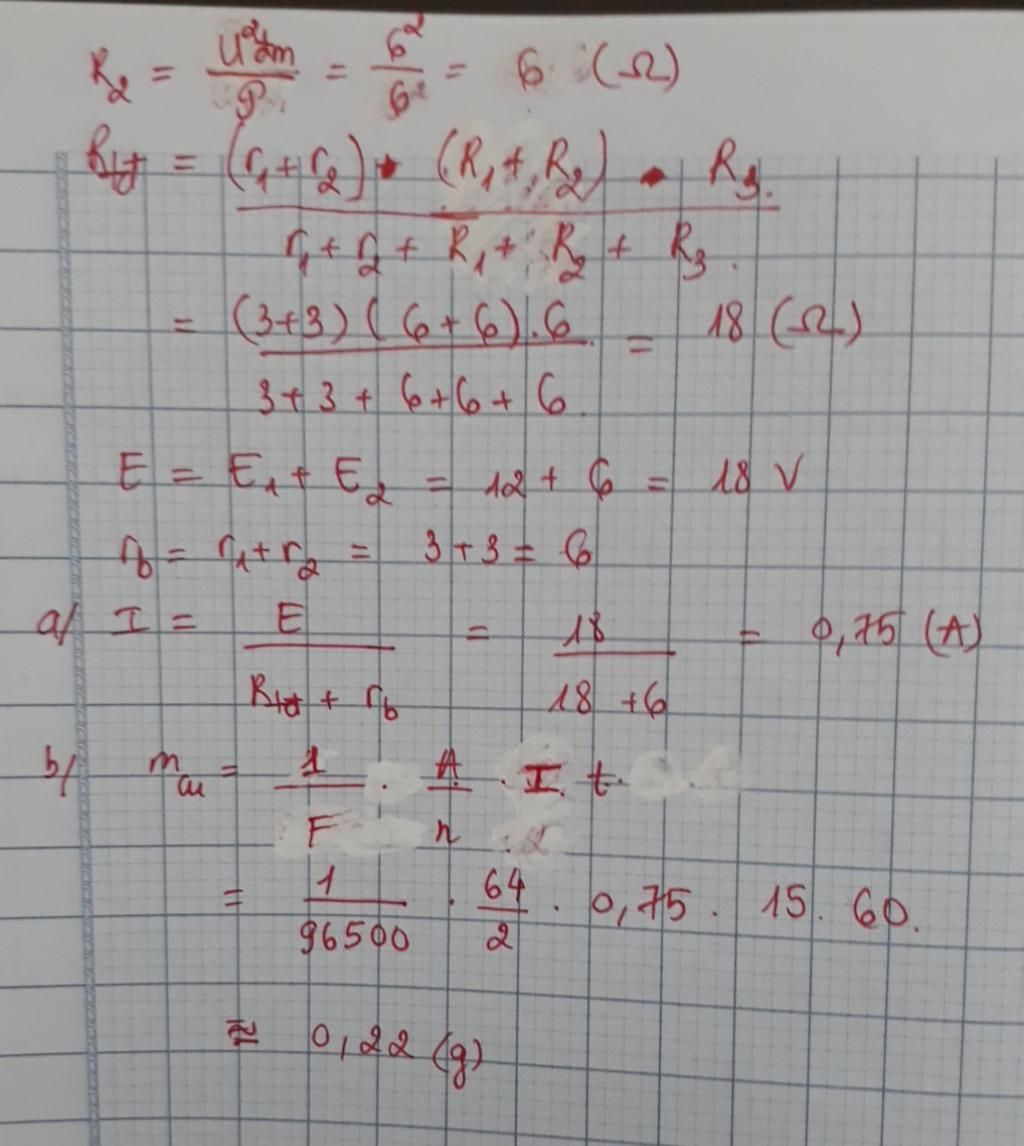 R₂ = U²đm / P = 6² / 6 = 6 (Ω)
Rtđ = (r₁ + r₂) . (R₁ + R₂) . R₃ / r₁ + r₂ + R₁ + R₂ + R₃.
= (3+3) (6+6) . 6 / 3 + 3 + 6 + 6 + 6 = 18 (Ω)
E = E₁ + E₂ = 12 + 6 = 18 V
rb = r₁ + r₂ = 3 + 3 = 6
a/ I = E / Rtđ + rb = 18 / 18 + 6 = 0,75 (A)
b/ mcu = 1 / F . A / n . I. t
= 1 / 96500 . 64 / 2 . 0,75 . 15 . 60.
≈ 0,22 (g)